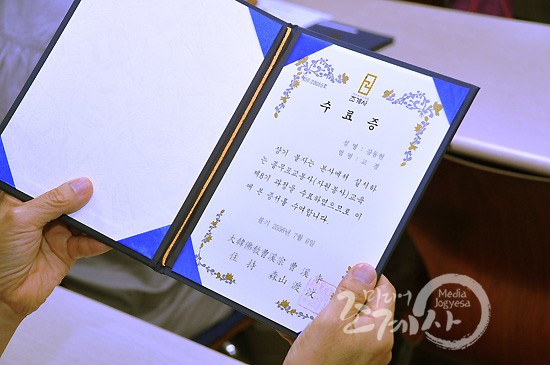 조계사
수 료 증
성 명 : 강동현
법 명 : 고 경
상기 불자는 본사에서 실시하
는 종무보교봉사(자원봉사)교육
제8기 과정을 수료하였으므로 이
에 본 증서를 수여합니다.
불기 2550년 7월 6일
大韓佛敎曹溪宗 曹溪寺
住 持
미디어
조계사
Media
Jogyesa